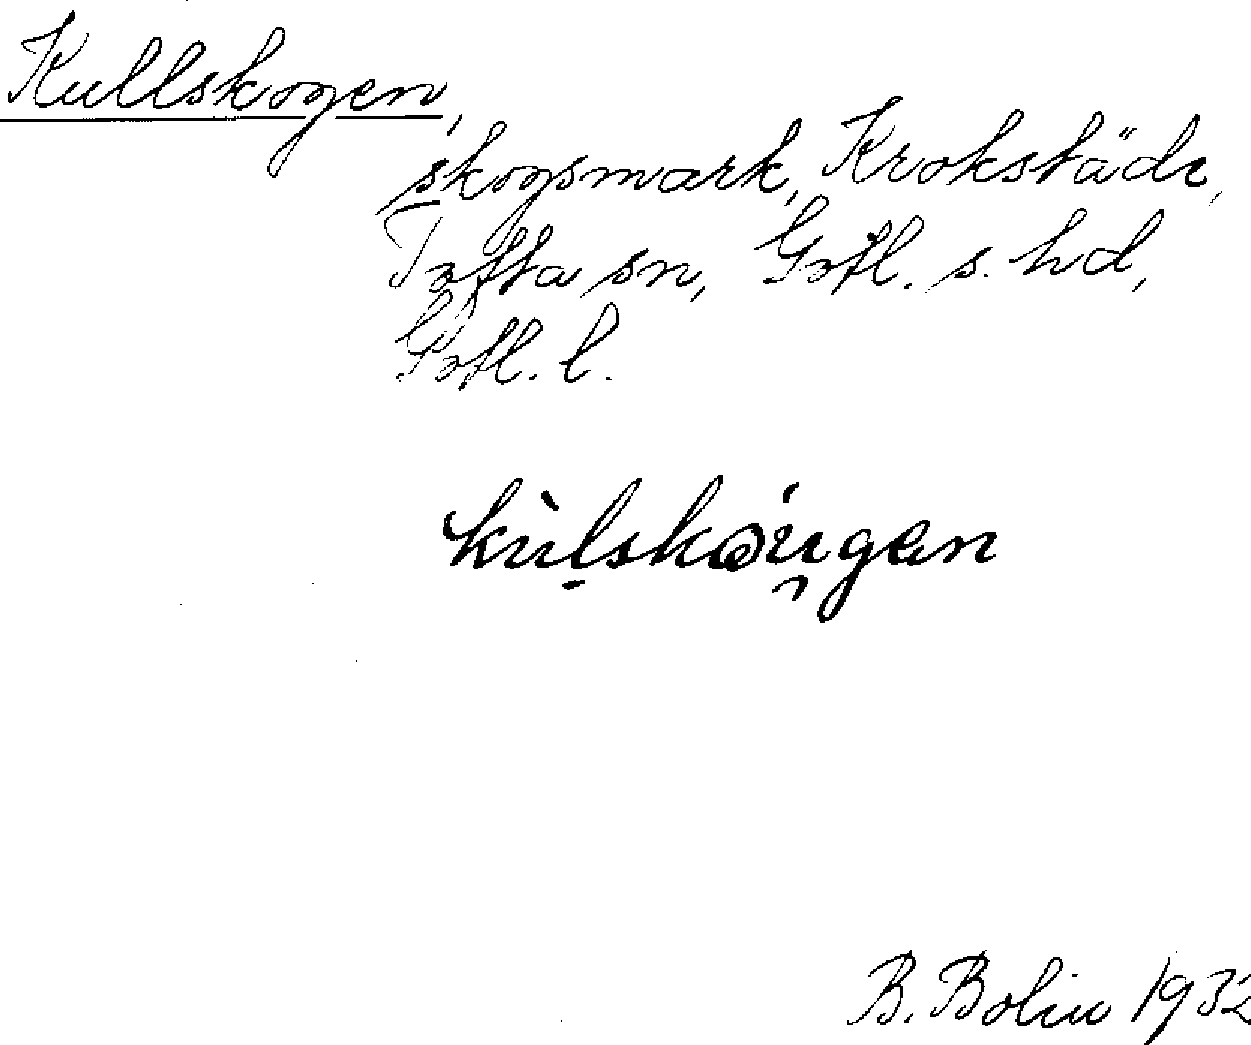 Kullskogen,
skogsmark, Krokstäde,
Tofta sn, Gotl. s. hd,
Gotl. l.
kùlskǝu̯gǝn
B. Bolin 1932